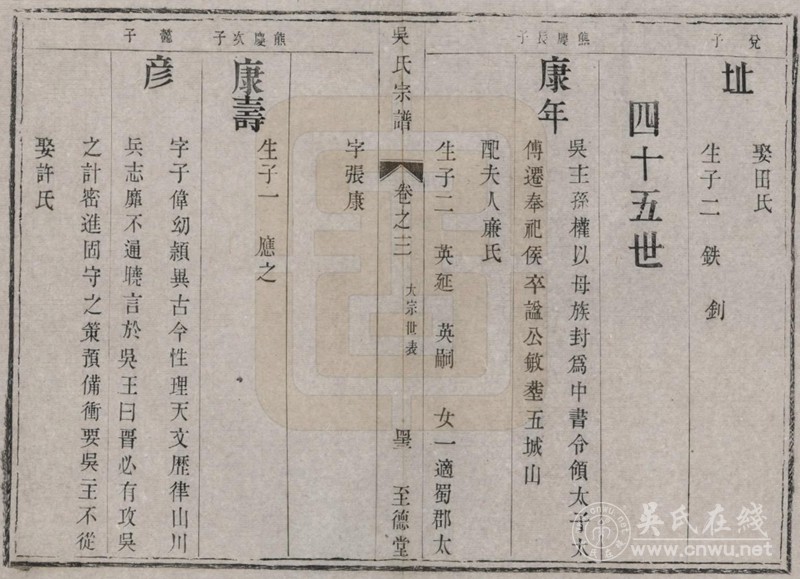 兌子
址
娶田氏
生子二 鉄 釗
四十五世
熊慶長子
康年
吳主孫權以母族封爲中書令領太子太
傅遷奉祀侯卒諡公敏塟五城山
配夫人廉氏
生子二 英延 英嗣 女一適蜀郡太
字張康
吳氏宗譜
卷之三
大宗世表
至德堂
熊慶次子
康壽
生子一 應之
子
彦
字子偉幼頴異古今性理天文歷律山川
兵志靡不通曉言於吳王曰晋必有攻吳
之計密進固守之策預備衝要吳主不從
娶許氏
吴氏在线
www.cnwu.net